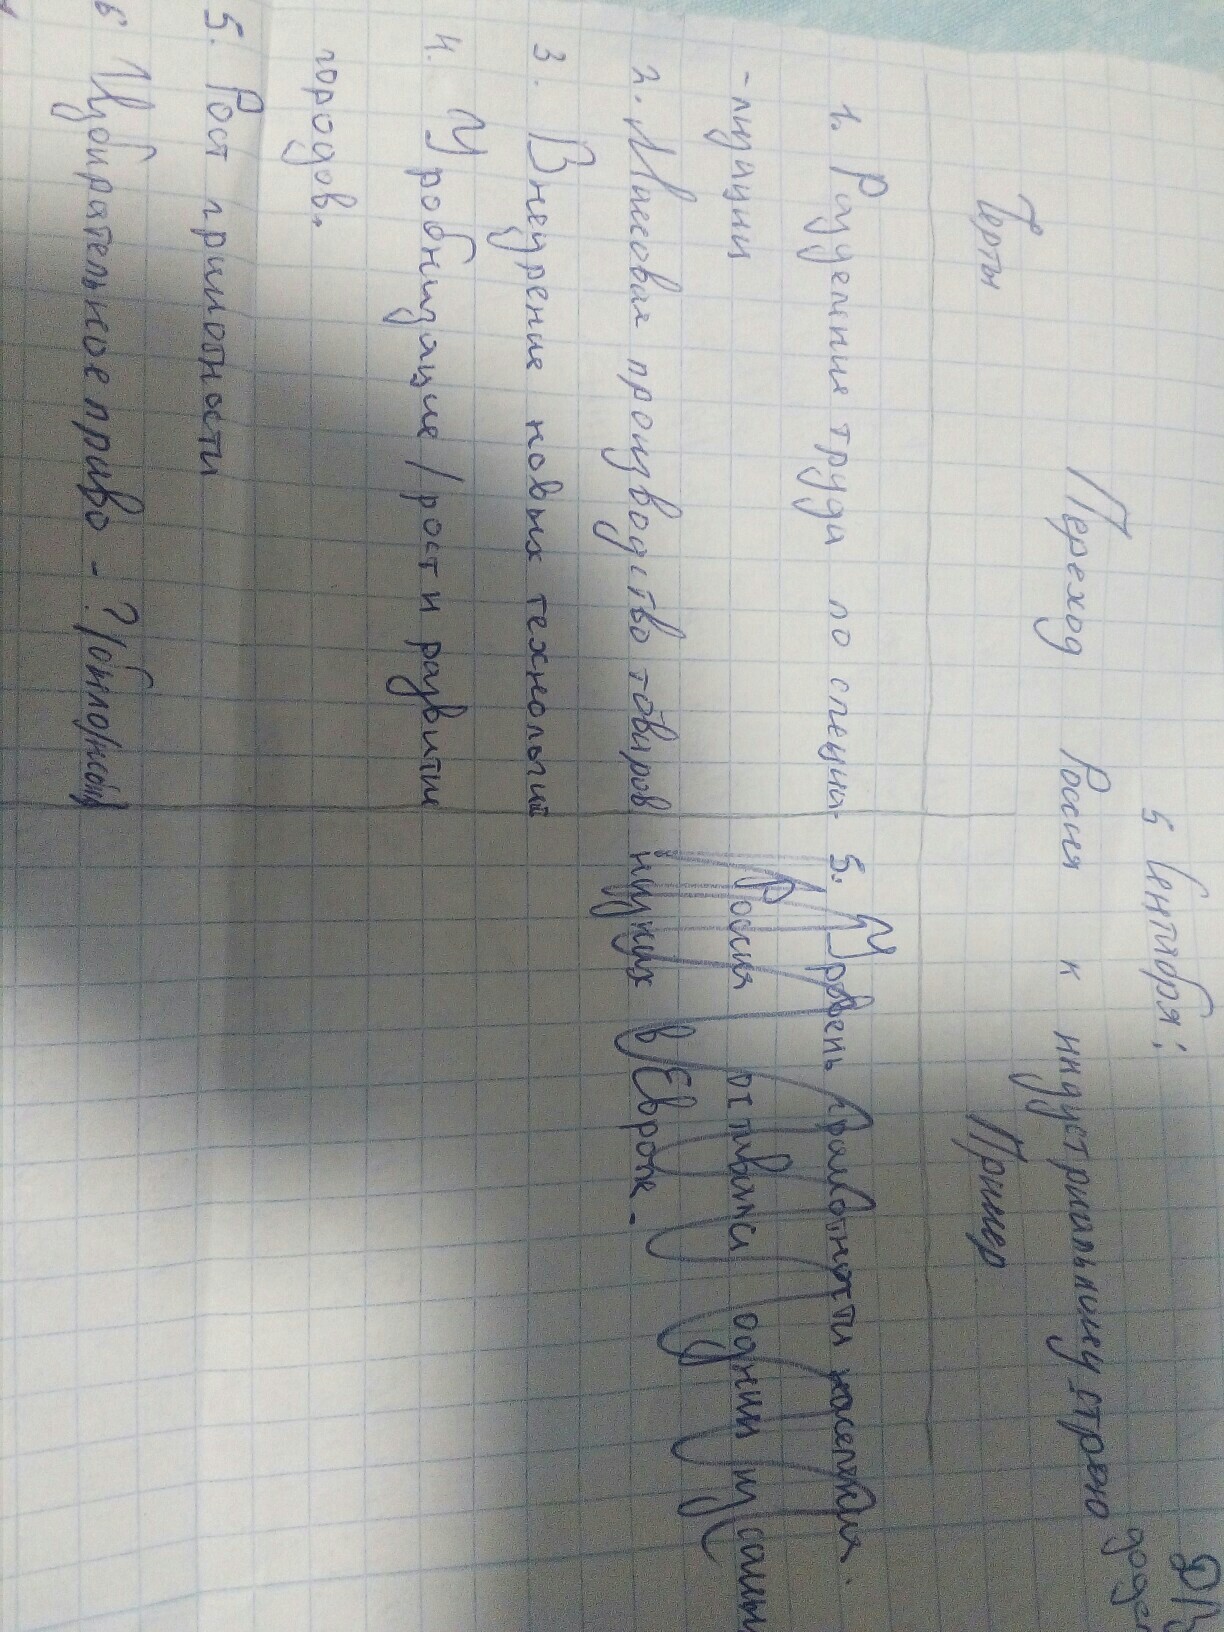 5 Сентября:
Переход Россия к индустриальному строю
Черты Пример
1. Разделение труда по специа-
- лизации
2. Массовая производство товаров
3. Внедрение новых технологий
4. Уробнизацие / рост и развитие
городов.
5. Рост грамотности
6 Избирательное право - ?
5. Уровень грамотности населения.
Россия отставала одним из самых
низких в Европе.